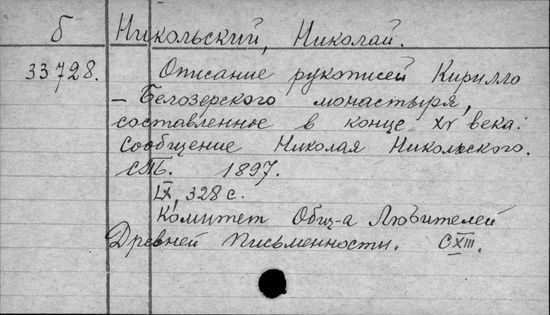 Б Никольский, Николай.
33728. Описание рукописей Кирилло
– Белозерского монастыря,
составленное в конце XV века.
Сообщение Николая Никольского.
СПБ. 1897.
LX, 328 с.
Комитет Общ-а Любителей
Древней Письменности. CXIII.